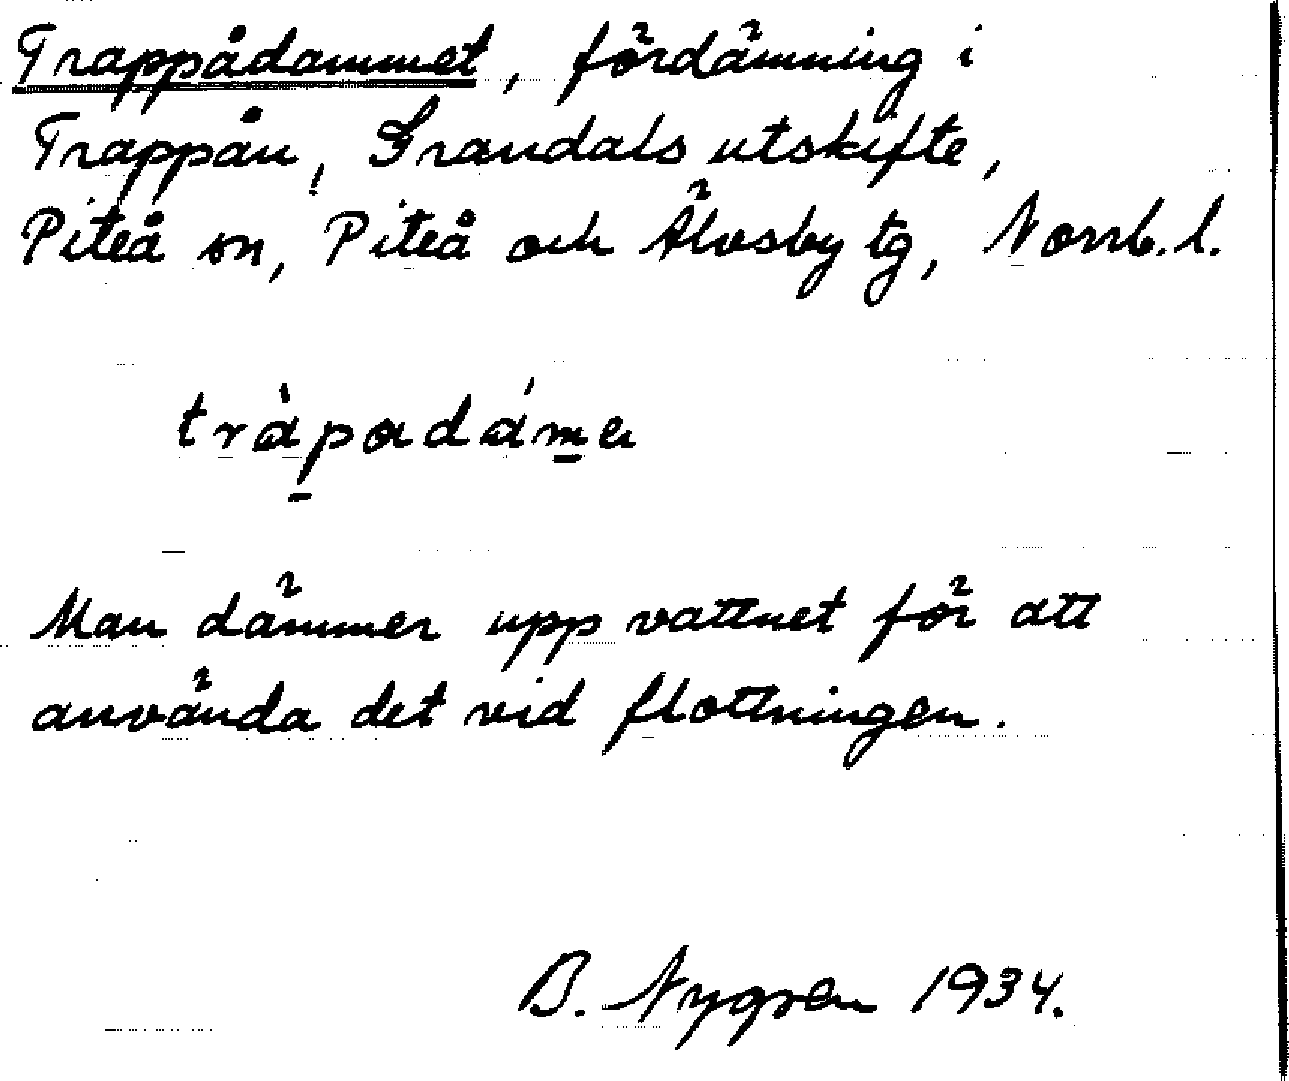 Trappådammet, fördämning i
Trappån, Grandals utskifte,
Piteå sn, Piteå och Älvsby tg, Norrb. l.
tràpadáme
Man dämmer upp vattnet för att
använda det vid flottningen.
B. Nygren 1934.